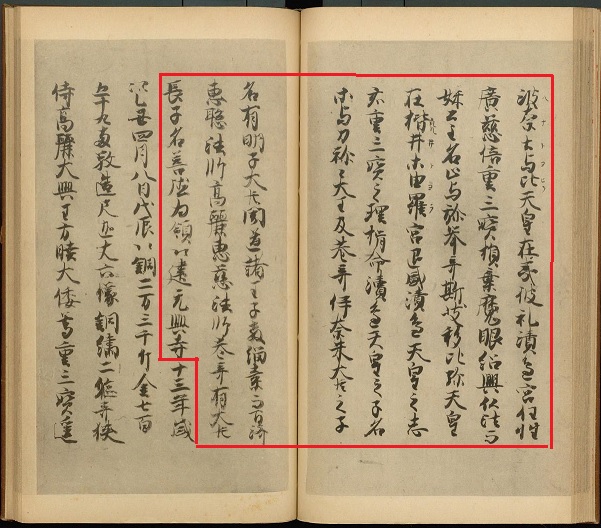 波奈土与比天皇在夷波礼涜邊宮任性
廣慈信重三寶損棄魔眼紹興仏法而
妹公主名止与祢擧奇斯岐移比弥天皇
在楷井等由羅宮追盛涜邊天皇之志
亦重三寶之理揖命涜邊天皇之子名
等与刀祢々大王及巷奇伊奈米大臣之子
名有明子大臣聞道諸王子教緇素而百済
恵聡法師高麗恵慈法師巷奇有大臣
長子名善徳為領以建元興寺十三年歳
次乙丑四月八日戊辰以銅二万三千斤金七百
五十九両敬造尺迦丈六像銅繍二躯并挟
侍高麗大興王方睦大倭尊重三寶遥